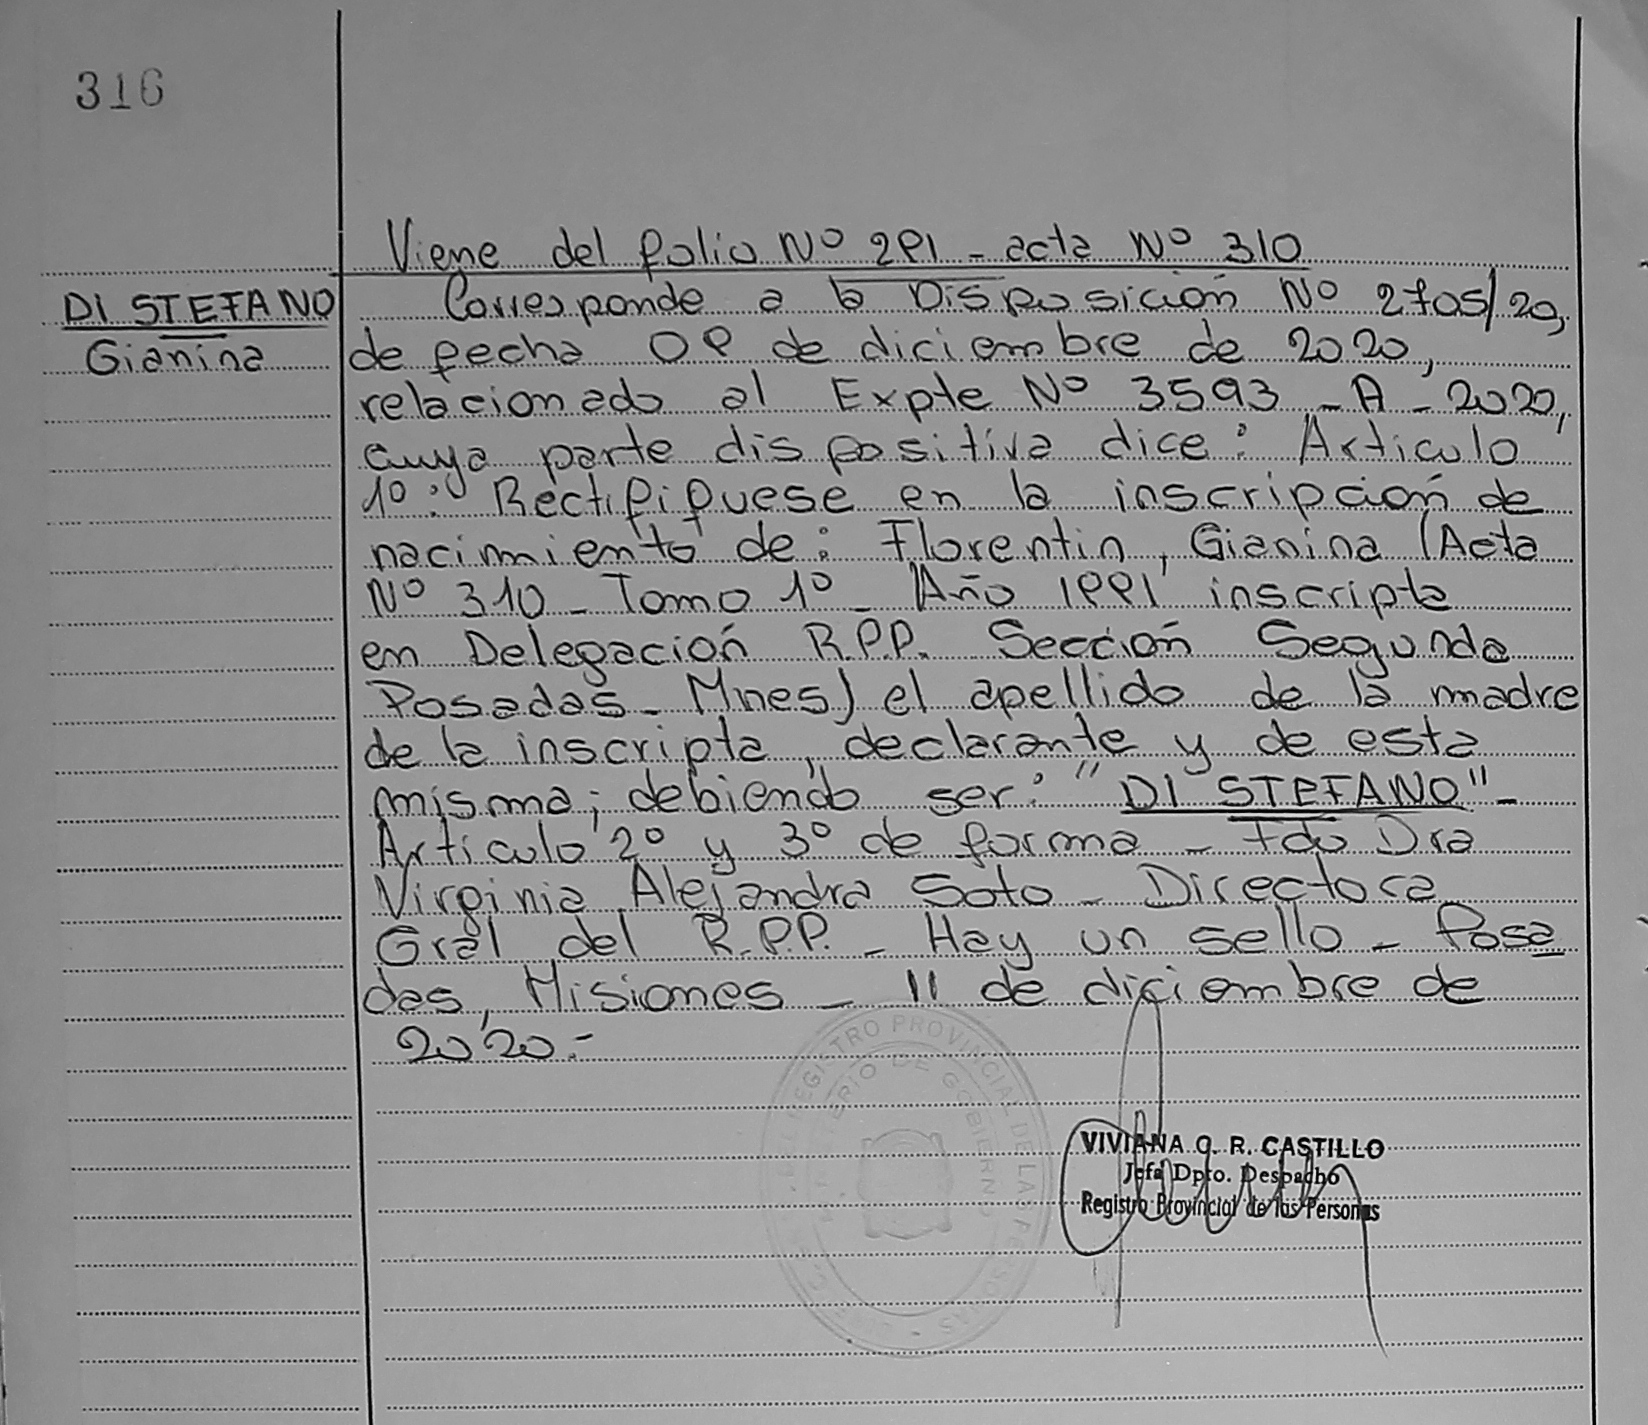 316
Viene del folio Nº 291 - acta Nº 310
DI STEFANO
Gianina
Corresponde a la Disposición Nº 2705/20,
de fecha 09 de diciembre de 2020,
relacionado al Expte Nº 3593 - A - 2020,
cuya parte dispositiva dice: Articulo
1º: Rectifíquese en la inscripción de
nacimiento de: Florentin, Gianina (Acta
Nº 310 - Tomo 1º - Año 1991 inscripta
en Delegación R.P.P. Sección Segunda
Posadas - Mnes) el apellido de la madre
de la inscripta, declarante y de esta
misma; debiendo ser: "DI STEFANO" -
Artículo 2º y 3º de forma - Fdo Dra
Virginia Alejandra Soto - Directora
Gral del R.P.P. - Hay un sello - Posa
das, Misiones - 11 de diciembre de
2020.-
REGISTRO PROVINCIAL DE LAS PERSONAS
DE GOBIERNO
VIVIANA G. R. CASTILLO
Jefa Dpto. Despacho
Registro Provincial de las Personas